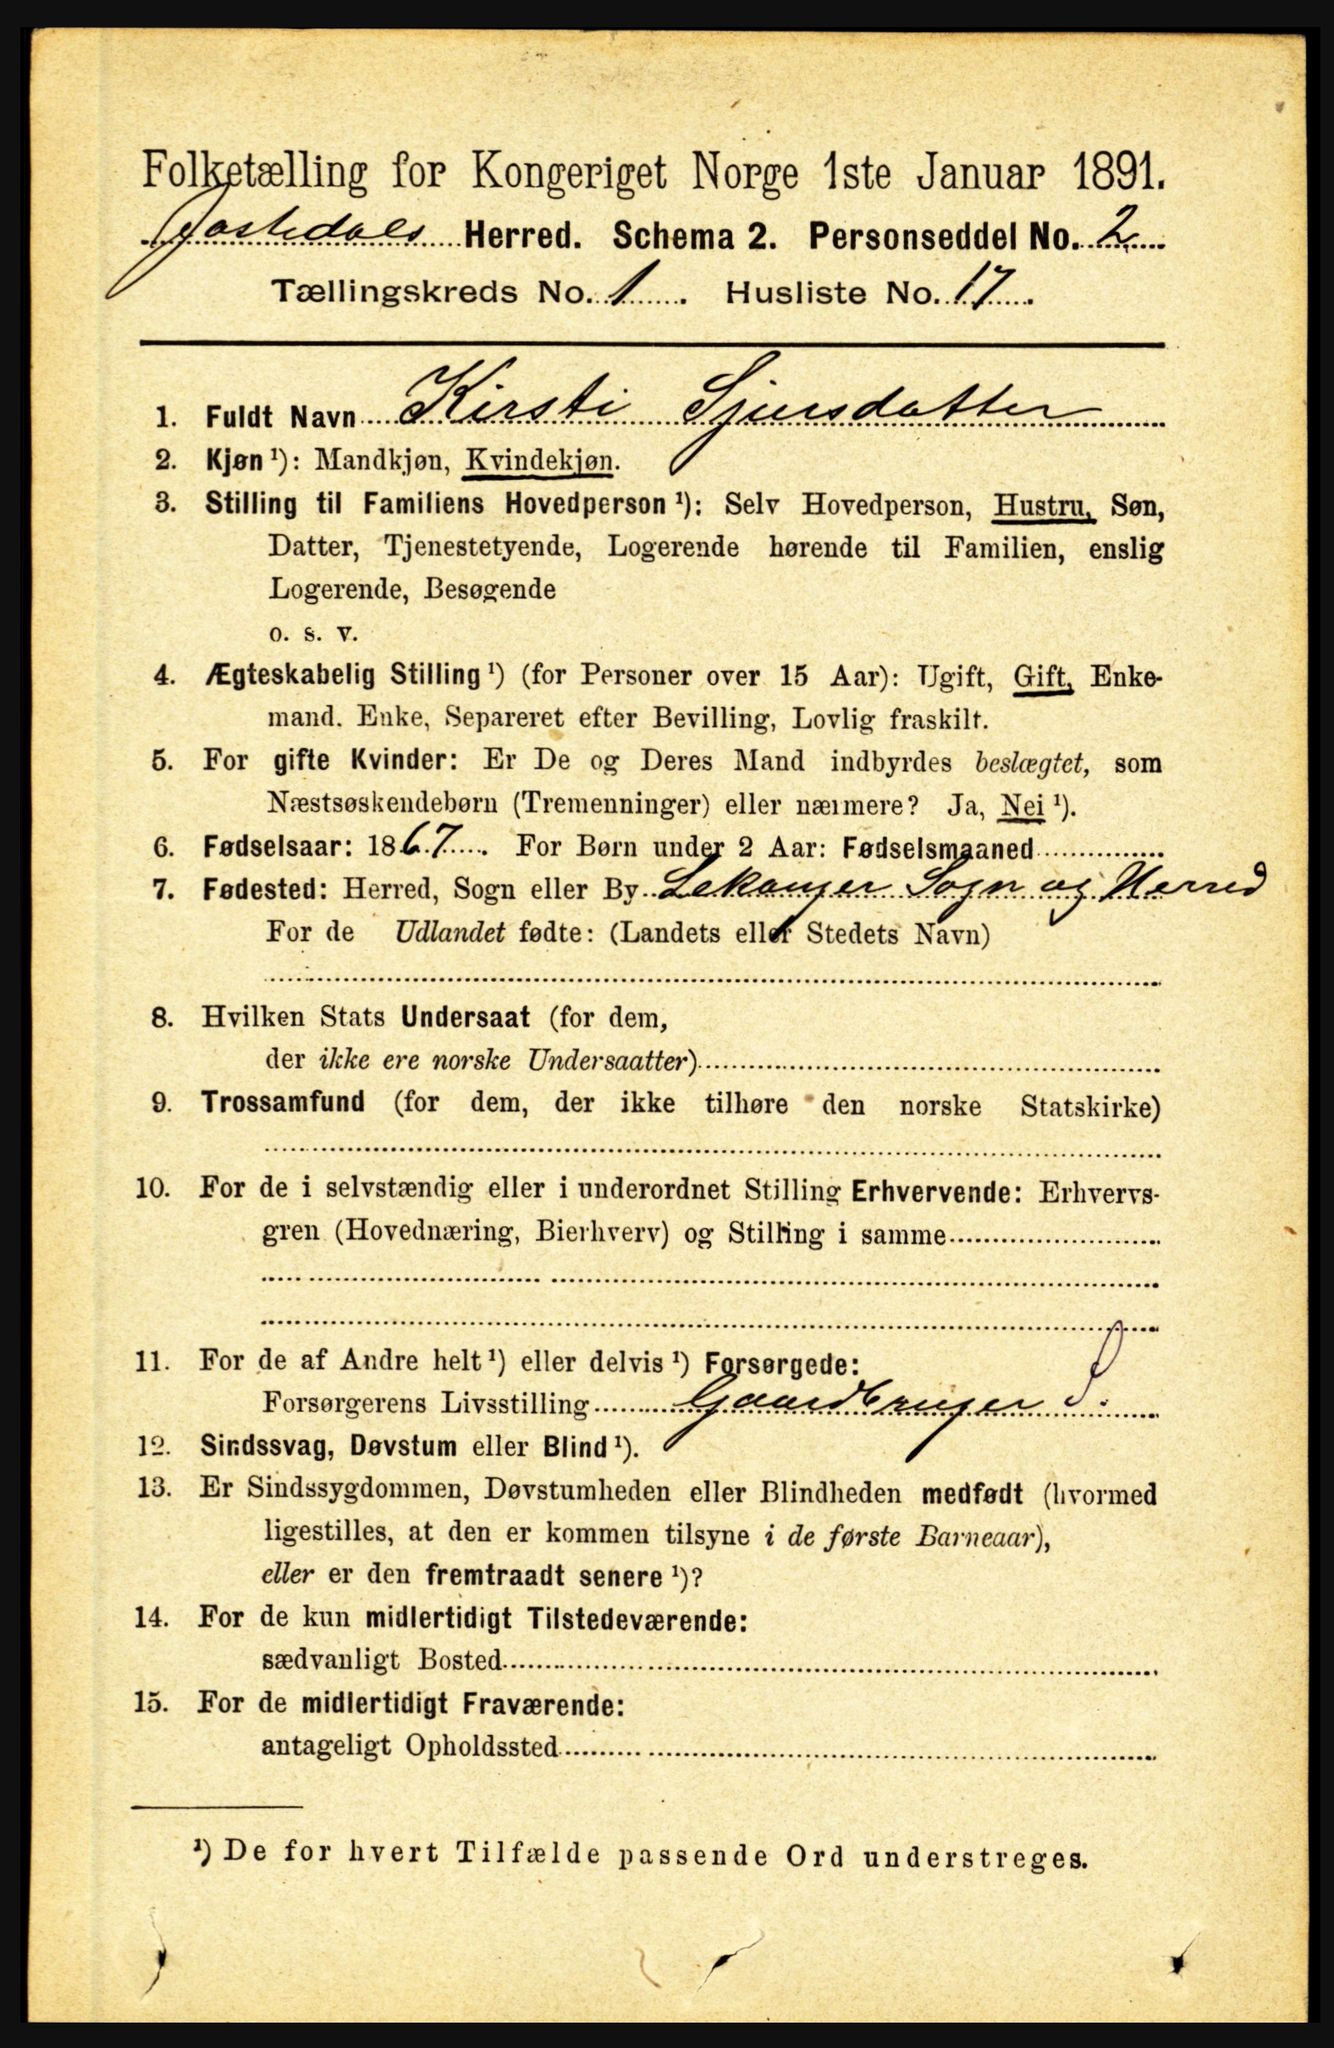 Folketælling for Kongeriget Norge 1ste Januar 1891.
Jostedals Herred. Schema 2. Personseddel No. 2
Tællingskreds No. 1. Husliste No. 17.
1. Fuldt Navn Kirsti Sjursdatter
2. Kjøn ¹): Mandkjøn, Kvindekjøn.
3. Stilling til Familiens Hovedperson ¹): Selv Hovedperson, Hustru, Søn,
Datter, Tjenestetyende, Logerende hørende til Familien, enslig
Logerende, Besøgende
o. s. v.
4. Ægteskabelig Stilling ¹) (for Personer over 15 Aar): Ugift, Gift, Enke-
mand. Enke, Separeret efter Bevilling, Lovlig fraskilt.
5. For gifte Kvinder: Er De og Deres Mand indbyrdes beslægtet, som
Næstsøskendebørn (Tremenninger) eller nærmere? Ja, Nei ¹).
6. Fødselsaar: 1867. For Børn under 2 Aar: Fødselsmaaned
7. Fødested: Herred, Sogn eller By Lekanger Sogn og Herred
For de Udlandet fødte: (Landets eller Stedets Navn)
8. Hvilken Stats Undersaat (for dem,
der ikke ere norske Undersaatter)
9. Trossamfund (for dem, der ikke tilhøre den norske Statskirke)
10. For de i selvstændig eller i underordnet Stilling Erhvervende: Erhvervs-
gren (Hovednæring, Bierhverv) og Stilling i samme
11. For de af Andre helt ¹) eller delvis ¹) Forsørgede:
Forsørgerens Livsstilling Gaardbruger S.
12. Sindssvag, Døvstum eller Blind ¹).
13. Er Sindssygdommen, Døvstumheden eller Blindheden medfødt (hvormed
ligestilles, at den er kommen tilsyne i de første Barneaar),
eller er den fremtraadt senere ¹)?
14. For de kun midlertidigt Tilstedeværende:
sædvanligt Bosted
15. For de midlertidigt Fraværende:
antageligt Opholdssted
¹) De for hvert Tilfælde passende Ord understreges.